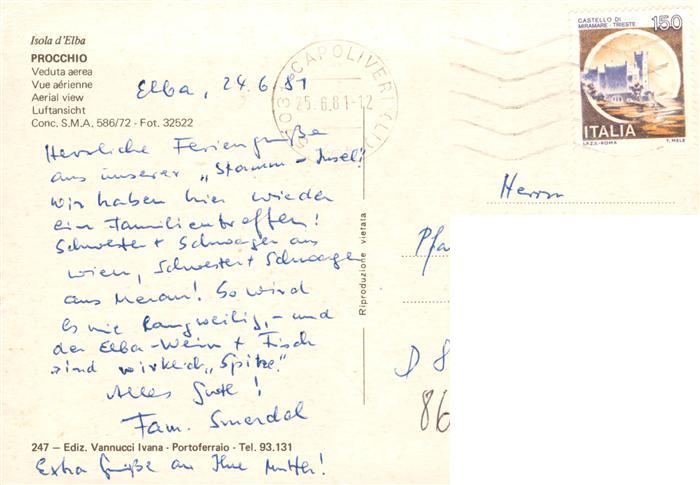 Isola d'Elba
PROCCHIO
Veduta aerea
Vue aérienne
Aerial view
Luftansicht
Conc. S.M.A. 586/72 - Fot. 32522
Elba, 24.6.81
Herzliche Feriengrüße
aus unserer „Stamm-Insel"!
Wir haben hier wieder
ein Familientreffen!
Schwester + Schwager aus
Wien, Schwester + Schwager
aus Meran! So wird
es nie langweilig, - und
der Elba-Wein + Fisch
sind wirklich „Spitze".
Alles Gute!
Fam.
247 — Ediz. Vannucci Ivana - Portoferraio - Tel. 93.131
Extra Grüße an Ihre Mutter!
Riproduzione vietata
CAPOLIVERI (LI)
25.6.81-12
CASTELLO DI
MIRAMARE - TRIESTE
150
ITALIA
I.P.Z.S.-ROMA T. MELE
Herrn
Pfa
D 8
86